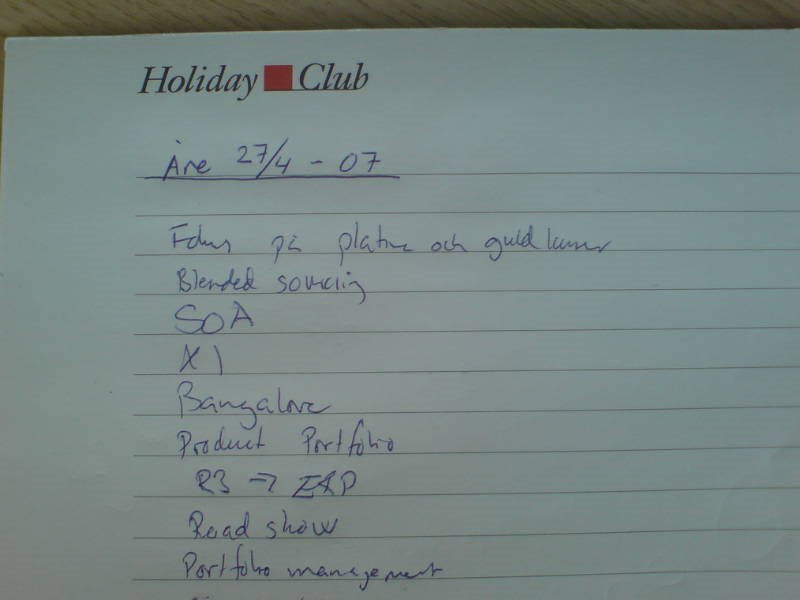 Holiday Club
Åre 27/4 - 07
Fokus på platina och guld kunder
Blended sourcing
SOA
XI
Bangalore
Product Portfolio
R3 → ERP
Road show
Portfolio management